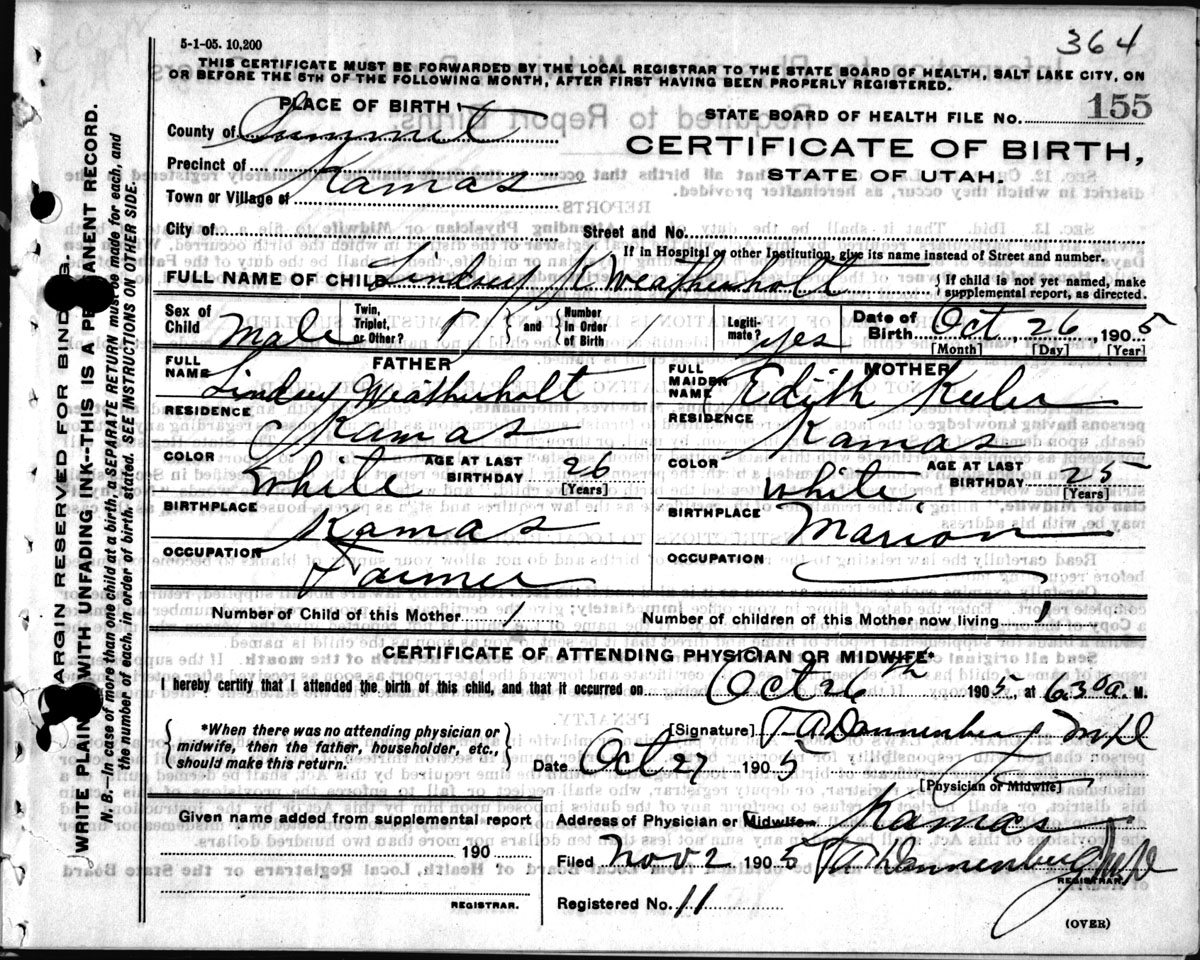 364
5-1-05. 10,200
THIS CERTIFICATE MUST BE FORWARDED BY THE LOCAL REGISTRAR TO THE STATE BOARD OF HEALTH, SALT LAKE CITY, ON
OR BEFORE THE 5TH OF THE FOLLOWING MONTH, AFTER FIRST HAVING BEEN PROPERLY REGISTERED.
PLACE OF BIRTH:
STATE BOARD OF HEALTH FILE No. 155
County of Summit
CERTIFICATE OF BIRTH,
STATE OF UTAH.
Precinct of
Kamas
Town or Village of
City of
Street and No.
If in Hospital or other Institution, give its name instead of Street and number.
FULL NAME OF CHILD Lindsey K Weatherholt
{If child is not yet named, make supplemental report, as directed.
Sex of Child Male
Twin, Triplet, or Other?
and
Number In Order of Birth 1
Legiti- mate? yes
Date of Birth Oct 26, 1905
[Month] [Day] [Year]
FATHER
FULL NAME Lindsey Weatherholt
RESIDENCE
Kamas
COLOR White
AGE AT LAST BIRTHDAY 26
[Years]
BIRTHPLACE
Kamas
OCCUPATION
Farmer
MOTHER
FULL MAIDEN NAME Edith
RESIDENCE Kamas
COLOR white
AGE AT LAST BIRTHDAY 25
[Years]
BIRTHPLACE Marion
OCCUPATION
Number of Child of this Mother 1
Number of children of this Mother now living 1
CERTIFICATE OF ATTENDING PHYSICIAN OR MIDWIFE*
I hereby certify that I attended the birth of this child, and that it occurred on Oct 26th 1905, at 6.30 a. M.
{*When there was no attending physician or
midwife, then the father, householder, etc.,
should make this return.}
[Signature] T. A. Dannenberg M.D
Date Oct 27 1905
[Physician or Midwife]
Address of Physician or Midwife Kamas
Given name added from supplemental report
190
REGISTRAR.
Filed Nov 2 1905 T. A. Dannenberg M.D
REGISTRAR.
Registered No. 11
(OVER)
MARGIN RESERVED FOR BINDING.
WRITE PLAINLY WITH UNFADING INK--THIS IS A PERMANENT RECORD.
N. B.--In case of more than one child at a birth, a SEPARATE RETURN must be made for each, and
the number of each, in order of birth, stated. SEE INSTRUCTIONS ON OTHER SIDE.